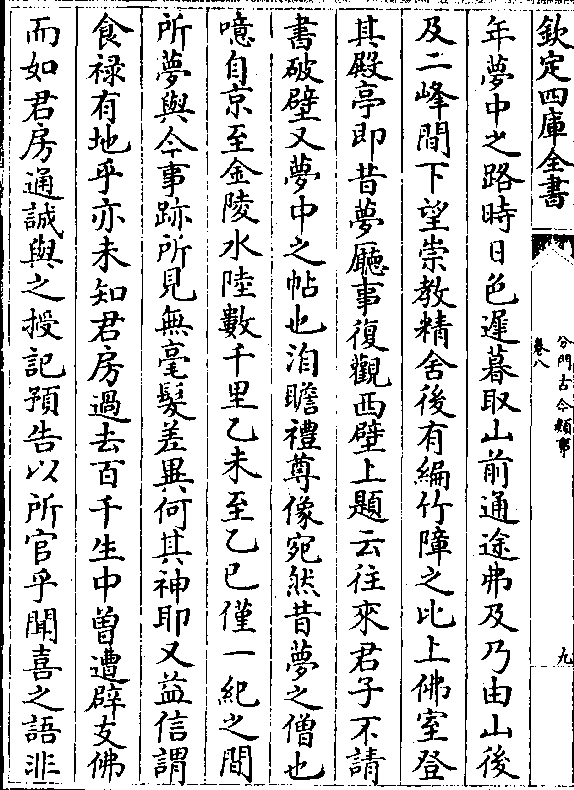 欽定四庫全書
分門古今類事
卷八
九
年夢中之路時日色遲暮取山前通途弗及乃由山後
及二峰間下望崇教精舍後有編竹障之比上佛室登
其殿亭即昔夢廳事復觀西壁上題云往來君子不請
書破壁又夢中之帖也洎瞻禮尊像宛然昔夢之僧也
噫自京至金陵水陸數千里乙未至乙巳僅一紀之間
所夢與今事跡所見無毫髮差異何其神耶又益信謂
食禄有地乎亦未知君房過去百千生中曽遭辟支佛
而如君房通誠與之授記預告以所官乎聞喜之語非